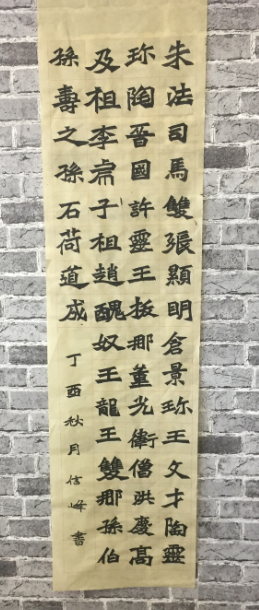 朱法司馬雙張顯明倉景珎王文才陶靈
珎陶晉國許靈王板郍董光衛僧洪慶高
及祖李席子祖趙醜奴王龍王雙郍孫伯
孫壽之孫石荷道成
丁酉秋月信峰書